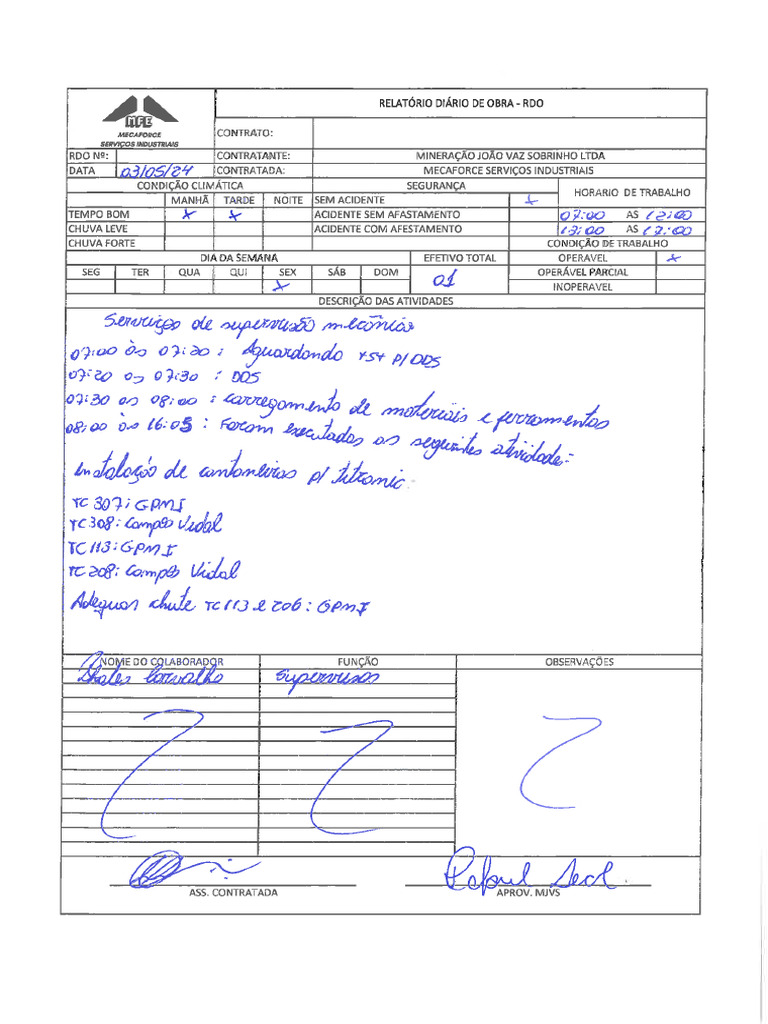 RELATÓRIO DIÁRIO DE OBRA - RDO
MFE
MECAFORCE
SERVIÇOS INDUSTRIAIS
CONTRATO:
RDO Nº: CONTRATANTE: MINERAÇÃO JOÃO VAZ SOBRINHO LTDA
DATA 03/05/24 CONTRATADA: MECAFORCE SERVIÇOS INDUSTRIAIS
CONDIÇÃO CLIMÁTICA SEGURANÇA HORARIO DE TRABALHO
MANHÃ TARDE NOITE SEM ACIDENTE X
TEMPO BOM X X ACIDENTE SEM AFASTAMENTO 07:00 AS 12:00
CHUVA LEVE ACIDENTE COM AFESTAMENTO 13:00 AS 17:00
CHUVA FORTE CONDIÇÃO DE TRABALHO
DIA DA SEMANA EFETIVO TOTAL OPERAVEL X
SEG TER QUA QUI SEX SÁB DOM 01 OPERÁVEL PARCIAL
X INOPERAVEL
DESCRIÇÃO DAS ATIVIDADES
Serviços de supervisão mecânica
07:00 às 07:20 : Aguardando TST P/ DDS
07:20 as 07:30 : DDS
07:30 as 08:00 : Carregamento de materiais e ferramentas
08:00 às 16:05 : Foram executadas as seguintes atividade:
instalação de cantoneiras p/ titronic
TC 307: GPMI
TC 308: Campos Vidal
TC 113: GPMI
TC 208: Campos Vidal
Adequar chute TC 113 e 206: GPMI
NOME DO COLABORADOR FUNÇÃO OBSERVAÇÕES
Carvalho Supervisor
ASS. CONTRATADA APROV. MJVS